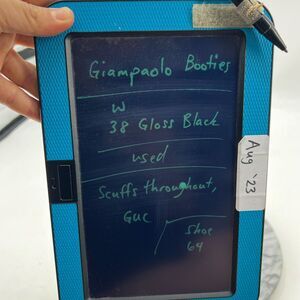 Giampaolo Booties
W
38 Gloss Black
used
Scuffs throughout,
GUC
Shoe
64
Aug '23